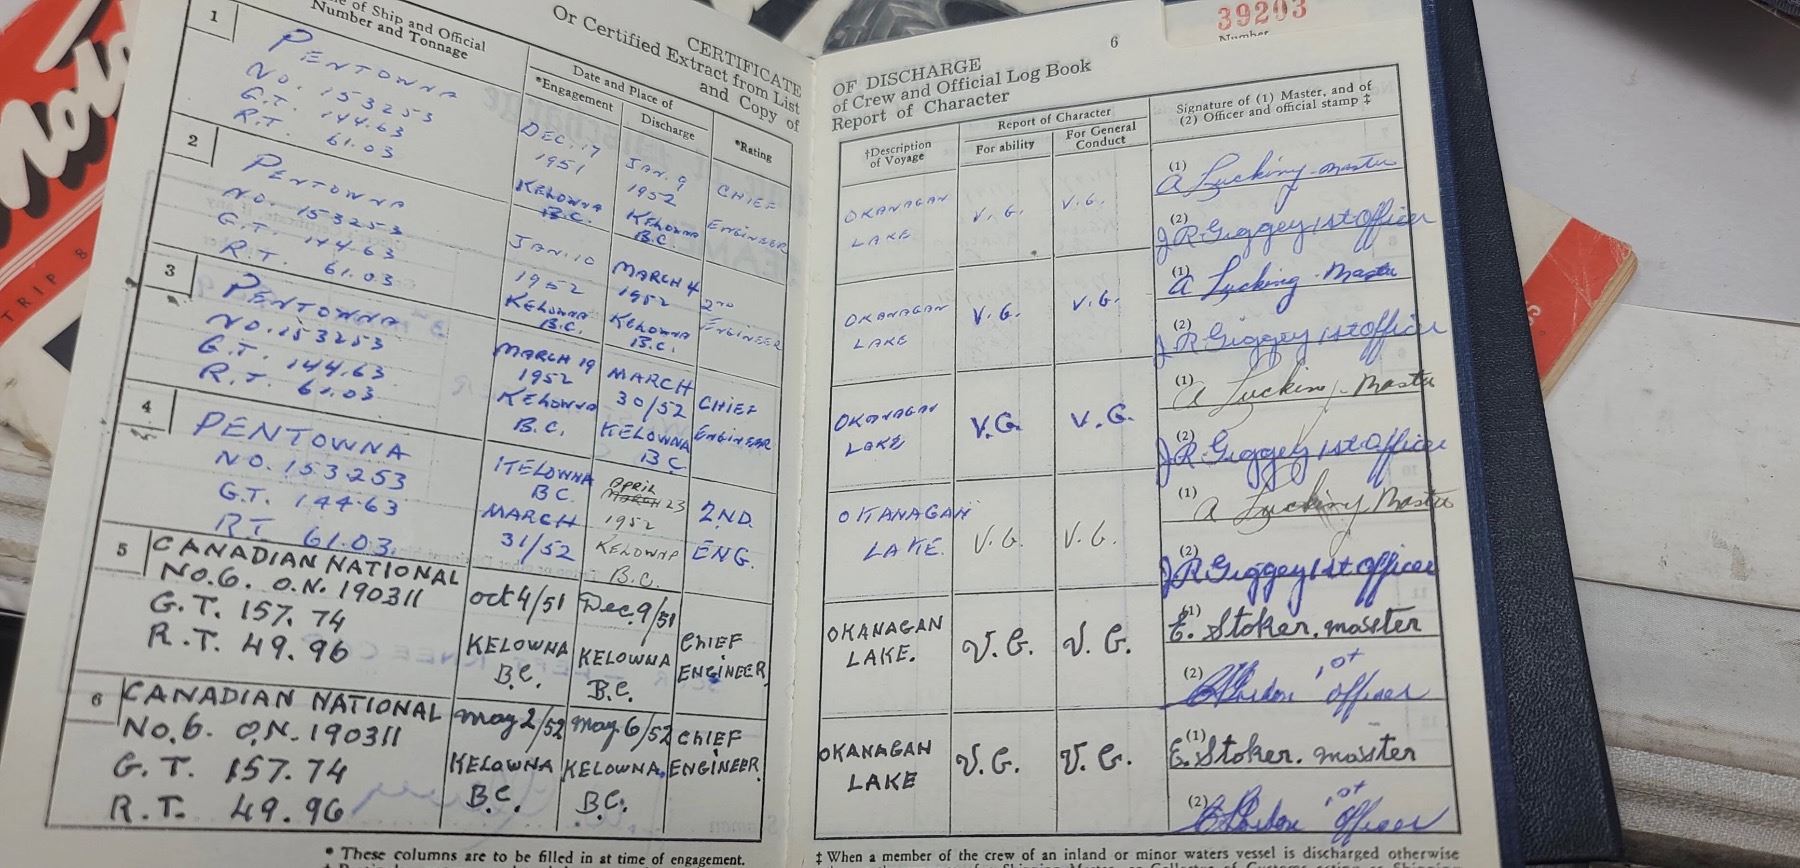 TRIP 8
39203
Number
6
e of Ship and Official
Number and Tonnage
CERTIFICATE
Or Certified Extract from List
and Copy of
Date and Place of
*Engagement
Discharge
*Rating
1
PENTOWNA
NO. 153253
G.T. 144.63
R.T. 61.03
DEC. 17
1951
KELOWNA
B.C.
JAN. 9
1952
KELOWNA
B.C.
CHIEF
ENGINEER
2
PENTOWNA
NO. 153253
G.T. 144.63
R.T. 61.03
JAN. 10
1952
KELOWNA
B.C.
MARCH 4
1952
KELOWNA
B.C.
2ND
ENGINEER
3
PENTOWNA
NO. 153253
G.T. 144.63
R.T. 61.03
MARCH 19
1952
KELOWNA
B.C.
MARCH
30/52
KELOWNA
B C
CHIEF
ENGINEER
4
PENTOWNA
NO. 153253
G.T. 144.63
R.T. 61.03.
KELOWNA
B.C.
MARCH
31/52
APRIL
MARCH 23
1952
KELOWNA
B.C.
2ND.
ENG.
5
CANADIAN NATIONAL
NO.6. O.N. 190311
G.T. 157.74
R.T. 49.96
oct 4/51
KELOWNA
B.C.
Dec. 9/51
KELOWNA
B.C.
CHIEF
ENGINEER
6
CANADIAN NATIONAL
NO.6. O.N. 190311
G.T. 157.74
R.T. 49.96
may 2/52
KELOWNA
B.C.
may. 6/52
KELOWNA.
B.C.
CHIEF
ENGINEER.
* These columns are to be filled in at time of engagement.
OF DISCHARGE
of Crew and Official Log Book
Report of Character
†Description
of Voyage
Report of Character
For ability
For General
Conduct
Signature of (1) Master, and of
(2) Officer and official stamp ‡
OKANAGAN
LAKE
V.G.
V.G.
(1)
A Lucking - Master
(2)
J R Giggey 1st Officer
OKANAGAN
LAKE
V.G.
V.G.
(1)
A Lucking - Master
(2)
J R Giggey 1st Officer
OKANAGAN
LAKE
V.G.
V.G.
(1)
A Lucking - Master
(2)
J R Giggey 1st Officer
OKANAGAN
LAKE.
V.G.
V.G.
(1)
A Lucking Master
(2)
J R Giggey 1st Officer
OKANAGAN
LAKE.
V.G.
V.G.
(1)
E. Stoker. master
(2)
1st Officer
OKANAGAN
LAKE
V.G.
V.G.
(1)
E. Stoker. master
(2)
1st Officer
‡ When a member of the crew of an inland or minor waters vessel is discharged otherwise